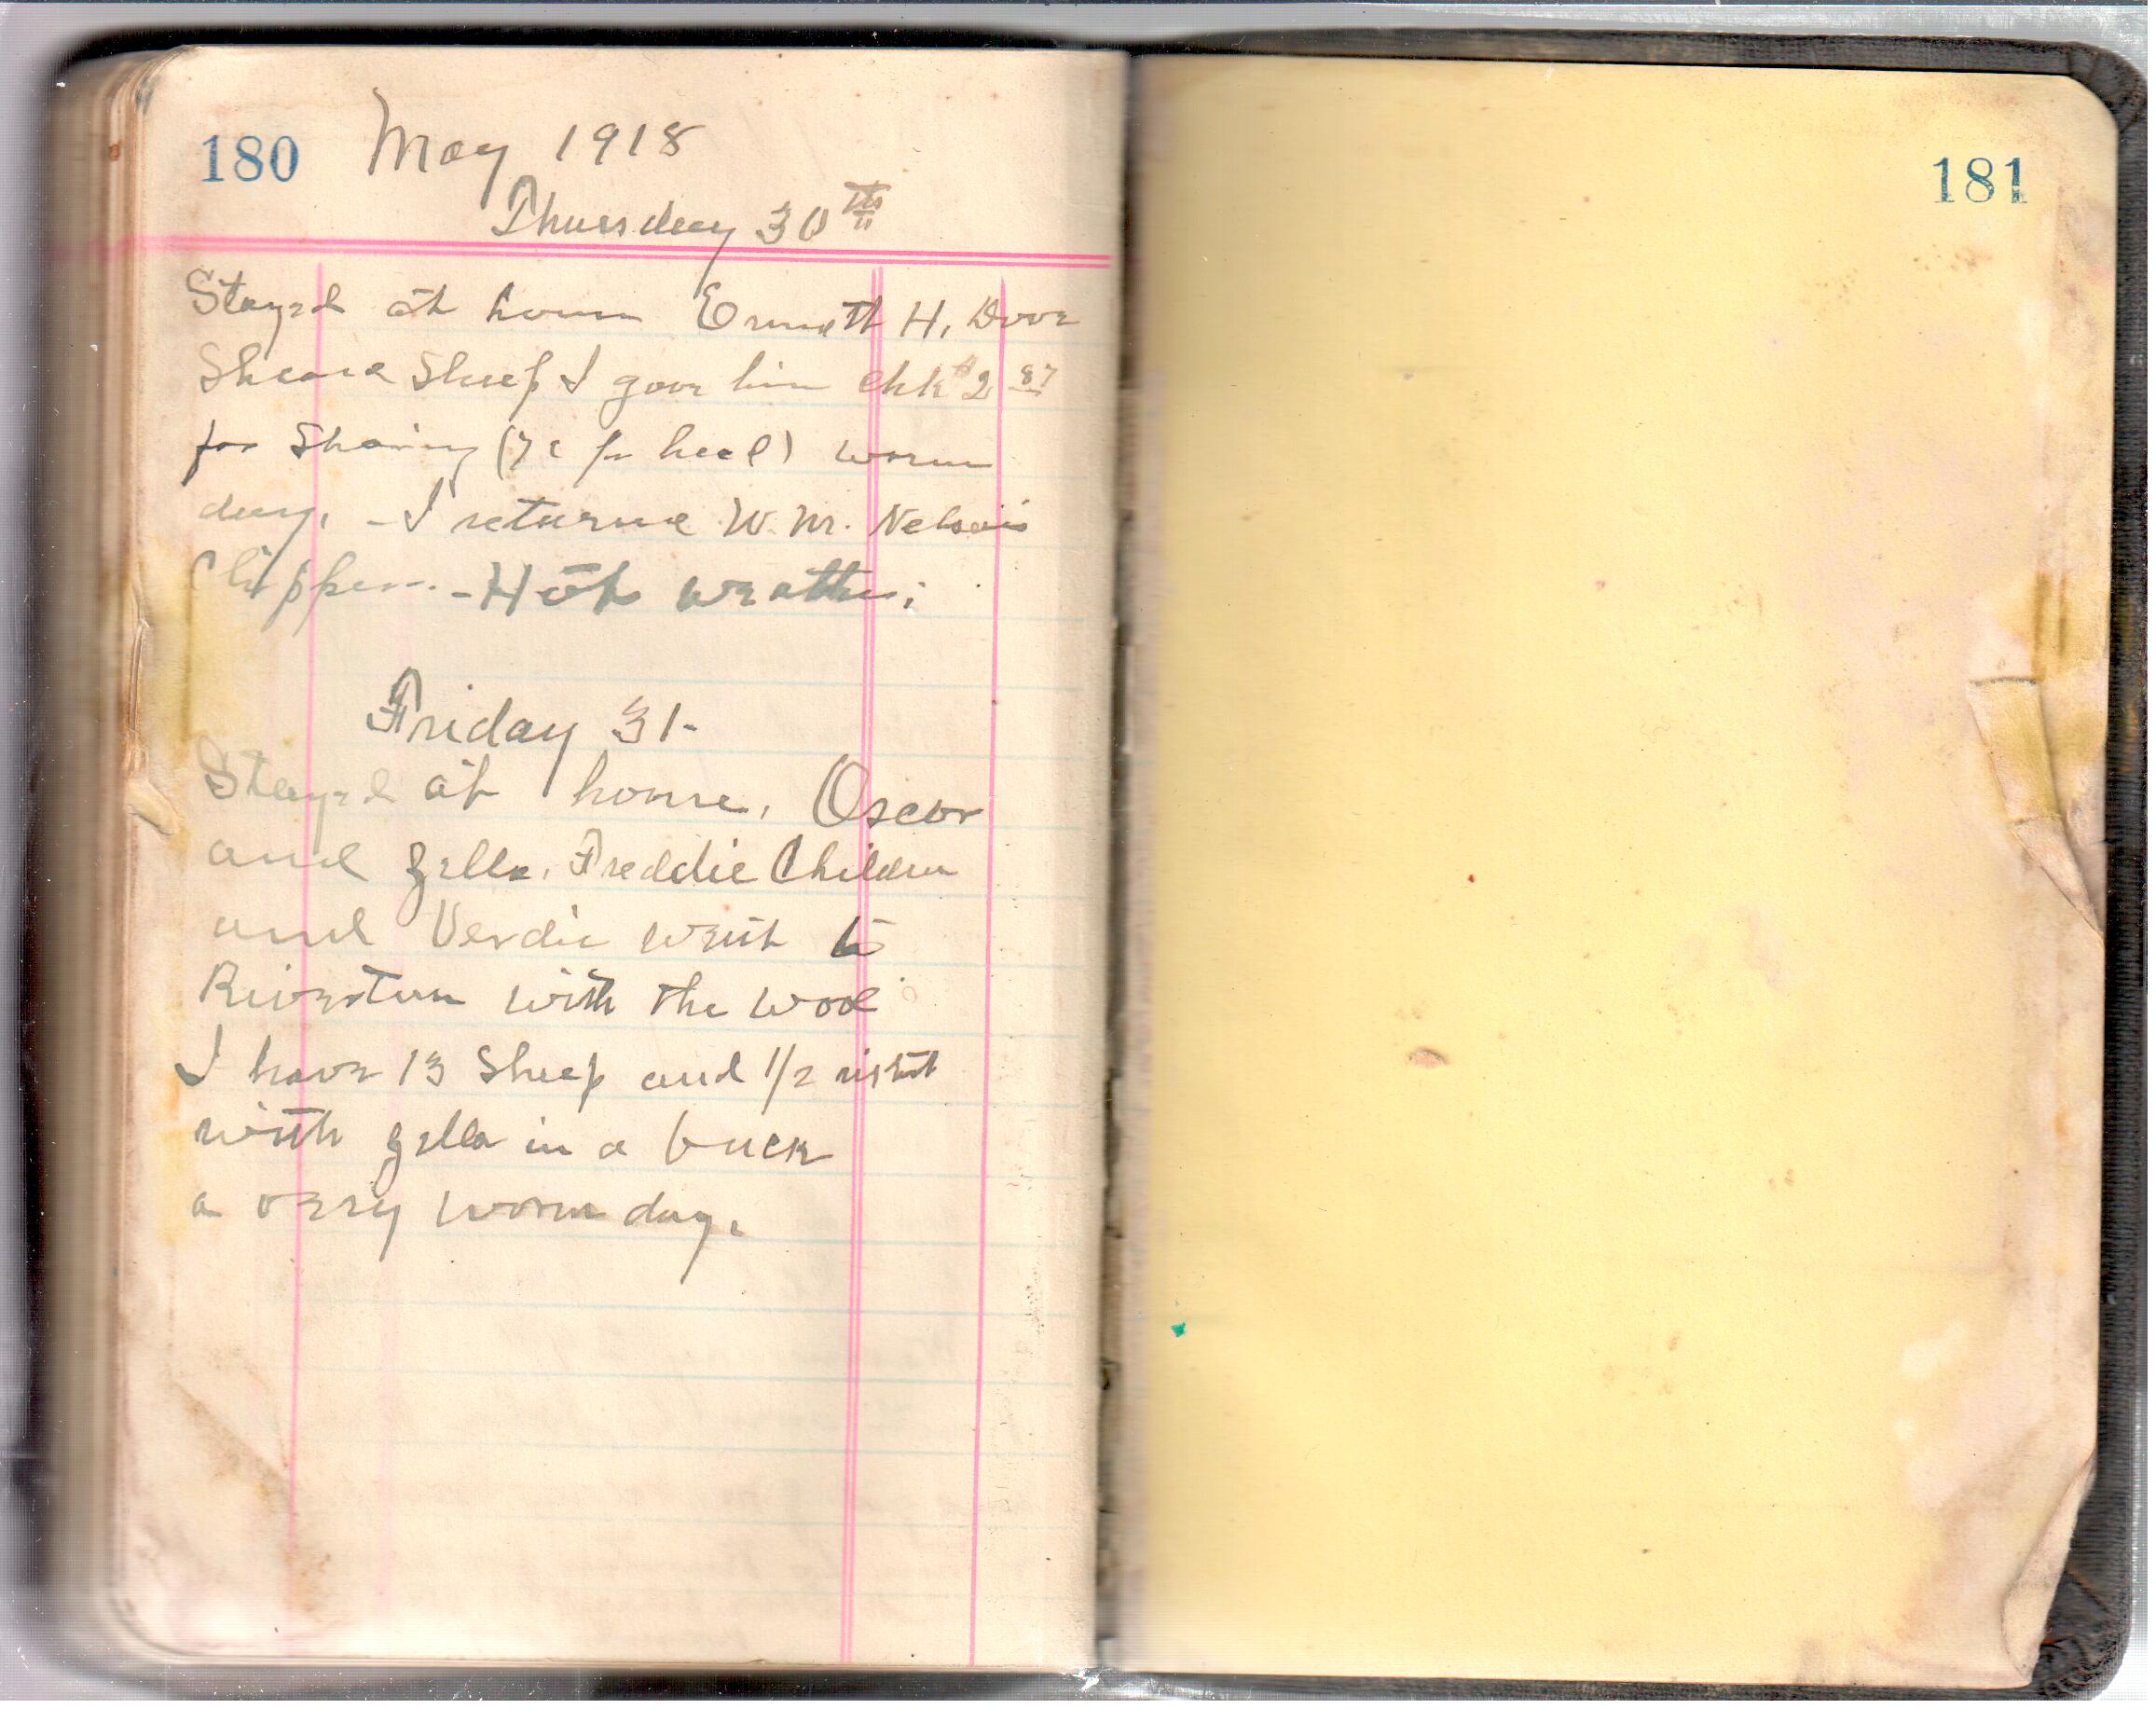 180 May 1918
Thursday 30th
Stayed at home Emmett H. Dove
Sheard Sheep I gave him chk $2 87
for Sharing (7¢ per head) worm
day. - I returned W. M. Nelson's
Clippers. - Hot weather;
Friday 31-
Stayed at home. Oscar
and Zella. Freddie Children
and Verdie went to
Riverton with the wool
I have 13 Sheep and 1/2
with Zella in a buck
a very worm day.
181